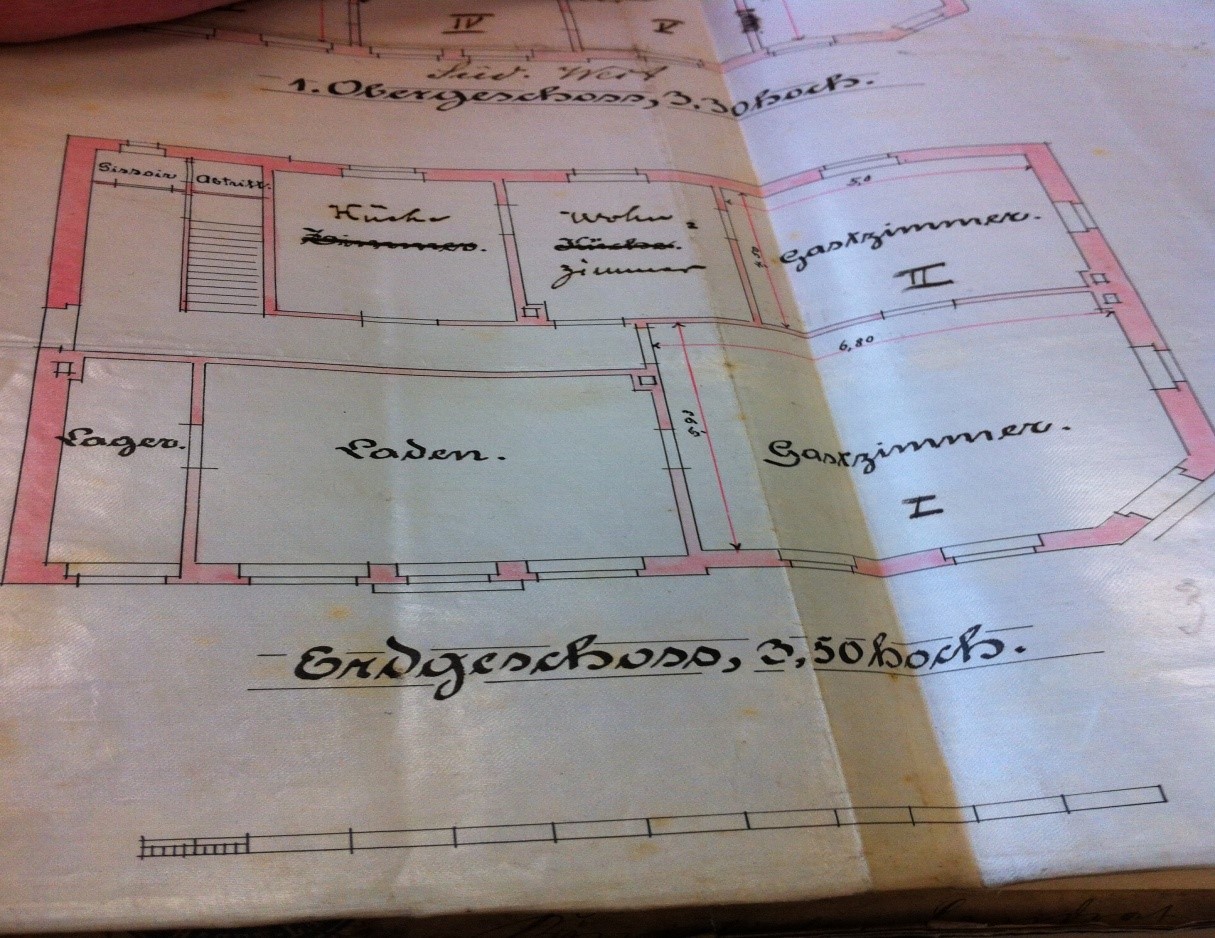 IV
V
Süd. West
1. Obergeschoss, 3.30 hoch.
Pissoir.
Abtritt.
Küche
Zimmer.
Wohn-
Küche.
zimmer
5,0
Gastzimmer.
II
6,80
Lager.
Laden.
Gastzimmer.
I
Erdgeschoss, 3,50 hoch.